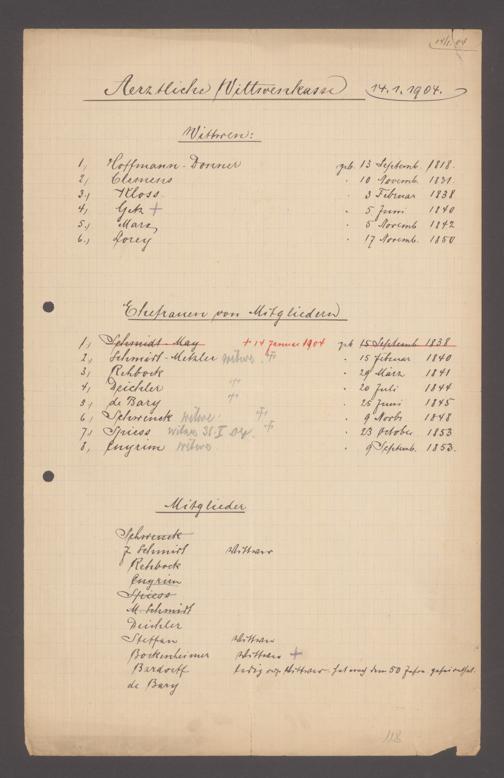 14/1. 04
Aerztliche Wittwenkasse 14.1.1904.
Wittwen:
1, Hoffmann-Donner geb. 13 Septemb. 1818.
2, Clemens " 10 Novemb. 1831.
3, Kloss " 3 Februar 1838
4, Getz + " 5 Juni 1840
5, Marx, " 5 Novemb 1842
6, Lorey " 17 Novemb. 1850
Ehefrauen von Mitgliedern
1, Schmidt-May + 14 Januar 1904 geb 15 Septemb 1838
2, Schmidt-Metzler witwe. + " 15 Februar 1840
3, Rehbock " 29 März 1841
4, Deichler + " 20 Juli 1844
5, de Bary + " 25 Juni 1845
6, Schwenck witwe + " 9 Novb 1848
7, Spiess witwe 31. I + " 23 October 1853
8, Engrim witwe " 9 Septemb. 1853.
Mitglieder
Schwenck
J. Schmidt Wittwer
Rehbock
Engrim
Spiess
M. Schmidt
Deichler
Steffan Wittwer
Bockenheimer Wittwer +
Bardorff ledig Wittwer. hat nach dem 50 Jahre geheirathet.
de Bary
118